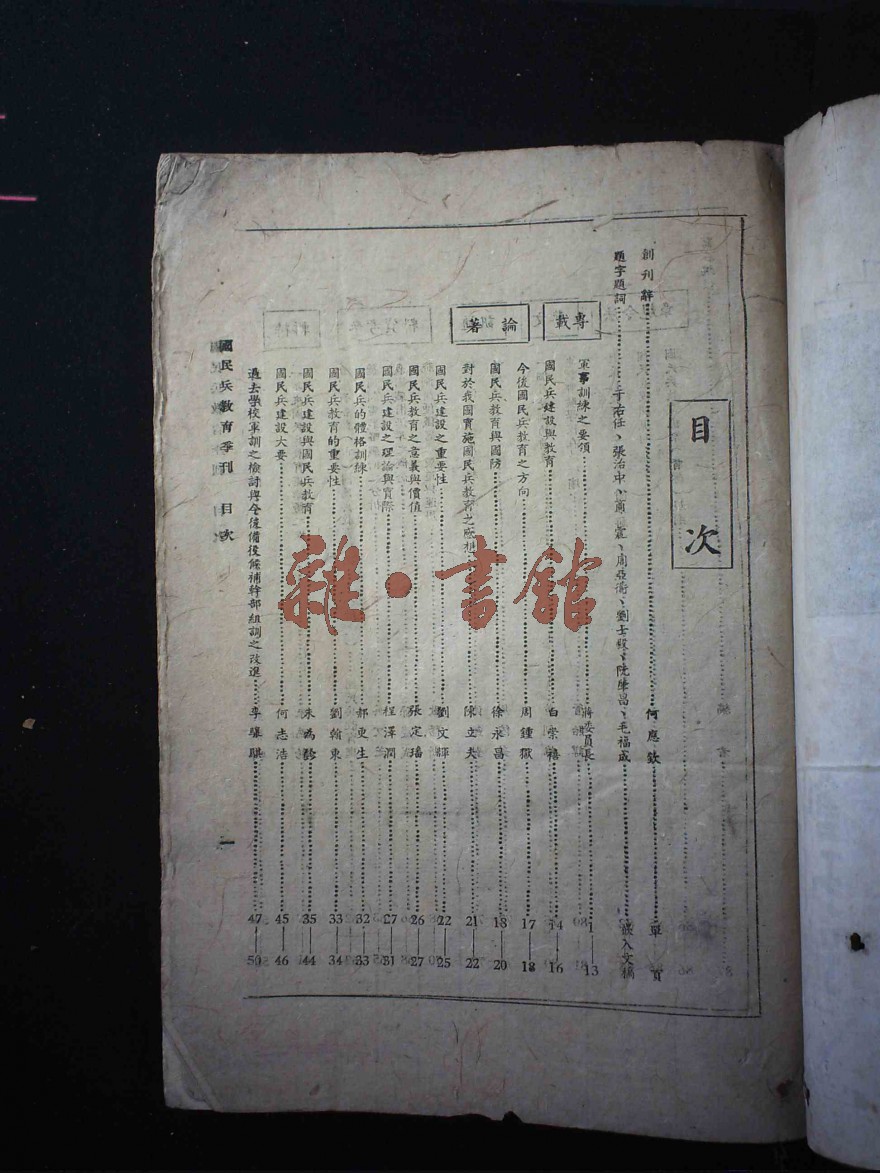 目次
創刊辭 何應欽 單頁
題字題詞 于右任、張治中、商震、周亞衛、劉士毅、阮肇昌、毛福成 嵌入文稿
專載
軍事訓練之要領 蔣委員長 1—13
國民兵建設與教育 白崇禧 14—16
論著
今後國民兵教育之方向 周鍾嶽 17—18
國民兵教育與國防 徐永昌 18—20
對於我國實施國民兵教育之感想 陳立夫 21—22
國民兵建設之重要性 劉文輝 22—25
國民兵教育之意義與價值 張定璠 26—27
國民兵建設之理論與實際 程澤潤 27—31
國民兵的體格訓練 郝更生 32—33
國民兵教育的重要性 劉翰東 33—34
國民兵建設與國民兵教育 朱為鉁 35—44
國民兵建設大要 何志浩 45—46
過去學校軍訓之檢討與今後備役候補幹部組訓之改進 李驤騏 47—50
國民兵教育季刊 目次 一
雜·書館